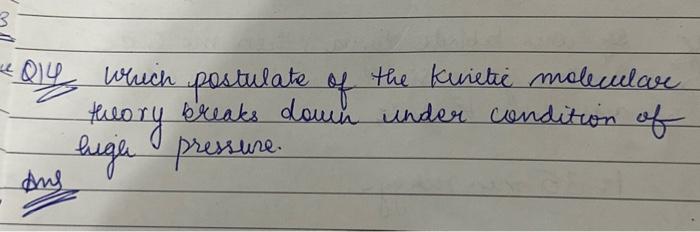 3
Q14 Which postulate of the Kinetic molecular
theory breaks down under condition of
high pressure.
Ans